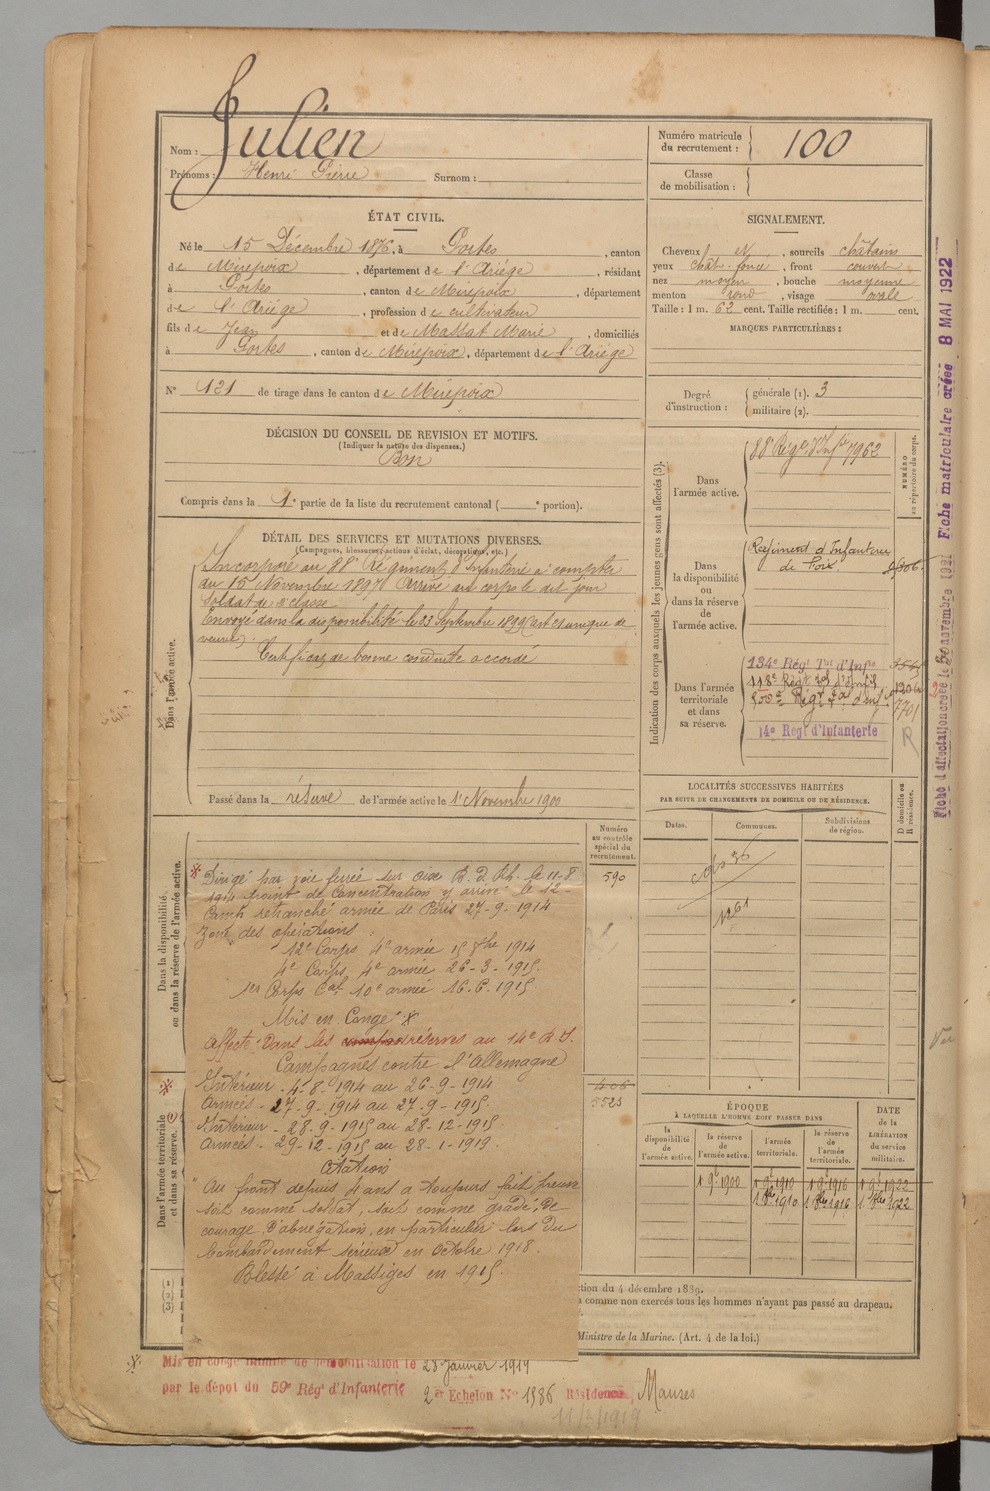 Nom : Julien
Prénoms : Henri Pierre Surnom :
Numéro matricule du recrutement : 100
Classe de mobilisation :
ÉTAT CIVIL.
Né le 15 Décembre 1876, à , canton
de Mirepoix , département de l'Ariége , résidant
à , canton de Mirepoix , département
de l'Ariége , profession de cultivateur
fils de Jean et de Massat Marie , domiciliés
à , canton de Mirepoix, département de l'Ariége
N° 121 de tirage dans le canton de Mirepoix
SIGNALEMENT.
Cheveux et , sourcils châtains
yeux chât. foncé , front couvert
nez moyen , bouche moyenne
menton rond , visage ovale
Taille : 1 m. 62 cent. Taille rectifiée : 1 m. cent.
MARQUES PARTICULIÈRES :
Degré d'instruction : générale (1). 3
militaire (2).
DÉCISION DU CONSEIL DE REVISION ET MOTIFS.
(Indiquer la nature des dispenses.)
Bon
Compris dans la 1e partie de la liste du recrutement cantonal ( e portion).
DÉTAIL DES SERVICES ET MUTATIONS DIVERSES.
(Campagnes, blessures, actions d'éclat, décorations, etc.)
Dans l'armée active.
Incorporé au 88e Régiment d'Infanterie à compter
du 15 Novembre 1897 Arrivé au corps le dit jour
soldat de 2e classe
Envoyé dans la disponibilité le 23 Septembre 1899 (art 21 unique de
veuve).
Certificat de bonne conduite accordé
Passé dans la réserve de l'armée active le 1er Novembre 1900
Indication des corps auxquels les jeunes gens sont affectés (3).
NUMÉRO au répertoire du corps.
Dans l'armée active.
88e Régt d'Infie 7962
Dans la disponibilité ou dans la réserve de l'armée active.
Régiment d'Infanterie
de Foix.
Dans l'armée territoriale et dans sa réserve.
134e Régt Tal d'Infie
118e Régt
14e Régt d'Infanterie
7701
R
Fiche matriculaire créée 8 MAI 1922
LOCALITÉS SUCCESSIVES HABITÉES
PAR SUITE DE CHANGEMENTS DE DOMICILE OU DE RÉSIDENCE.
Dates. Communes. Subdivisions de région. D domicile ou R résidence.
1261
Numéro au contrôle spécial du recrutement.
590
5523
Dans la disponibilité ou dans la réserve de l'armée active.
Dans l'armée territoriale et dans sa réserve.
Dirigé par voie ferrée sur Aix B. d. Rh. le 11-8
1914 point de concentration y arrivé le 12-
Camp retranché armée de Paris 27-9-1914
Zone des opérations :
12e Corps 4e armée 15 1914
4e Corps 4e armée 26-3-1915.
1er Corps Cal 10e armée 16.6.1915
Mis en Congé *
Affecté dans les réserves au 14e R I.
Campagnes contre l'Allemagne
Intérieur - 4-8-1914 au 26-9-1914
Armées - 27-9-1914 au 27-9-1915.
Intérieur - 28-9-1915 au 28-12-1915
Armées - 29-12-1915 au 28-1-1919.
Citation
"Au front depuis 4 ans a toujours fait preuve
soit comme soldat, soit comme gradé, de
courage, d'abnégation, en particulier lors du
bombardement sérieux en Octobre 1918.
Blessé à Massiges en 1915.
ÉPOQUE
À LAQUELLE L'HOMME DOIT PASSER DANS
la disponibilité de l'armée active. la réserve de l'armée active. l'armée territoriale. la réserve de l'armée territoriale. DATE de la LIBÉRATION du service militaire.
1 9bre 1900 1 9bre 1910 1 9bre 1916 1 9bre 1922
1 8bre 1910 1 8bre 1916 1 8bre 1922
(1)
(2)
(3)
ction du 4 décembre 1889.
comme non exercés tous les hommes n'ayant pas passé au drapeau.
Ministre de la Marine. (Art. 4 de la loi.)
Mis en congé illimité de démobilisation le 28 Janvier 1919
par le dépôt du 59e Régt d'Infanterie 2e Echelon No 1386 Résidence Manses
11/2/1919